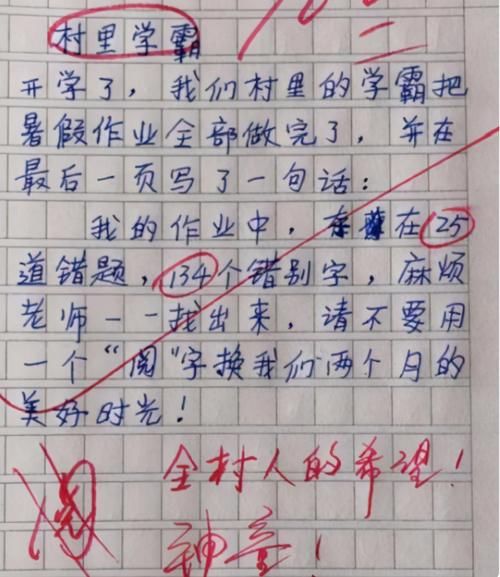 村里学霸
开学了，我们村里的学霸把
暑假作业全部做完了，并在
最后一页写了一句话：
我的作业中，存在25
道错题，134个错别字，麻烦
老师一一找出来，请不要用
一个“阅”字换我们两个月的
美好时光！
全村人的希望！
神童！